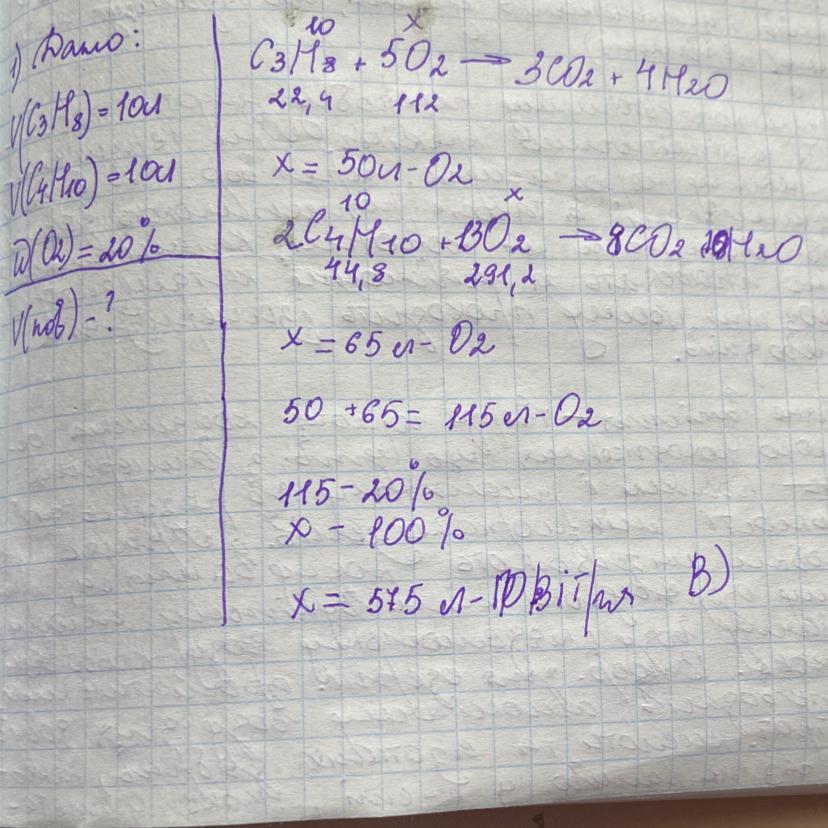 1) Дано:
V(C3H8)=10л
V(C4H10)=10л
ω(O2)=20%
V(пов)-?
10 x
C3H8 + 5O2 → 3CO2 + 4H2O
22,4 112
x = 50л-O2
10 x
2C4H10 + 13O2 → 8CO2 10H2O
44,8 291,2
x = 65л- O2
50 +65= 115л-O2
115 - 20%
x - 100%
x = 575 л- Повітря В)